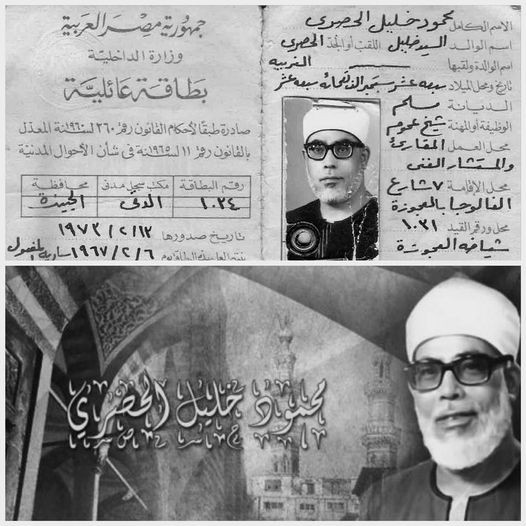 جمهورية مصر العربية
وزارة الداخلية
بطاقة عائلية
صادرة طبقا لأحكام القانون رقم ٢٦٠ لسنة ١٩٦٠ المعدل
بالقانون رقم ١١ لسنة ١٩٦٥ في شأن الأحوال المدنية
رقم البطاقة مكتب سجل مدنى محافظة
١٠٣٤ الدقى الجيزة
تاريخ صدورها ١٩٧٣/٢/١٣
١٩٦٧/٢/٦
الاسم الكامل محمود خليل الحصرى
اسم الوالد السيد خليل اللقب أو الجد الحصرى
اسم الوالدة ولقبها الغربيه
تاريخ ومحل الميلاد سبعه عشر سبتمبر الف تسعمائة سبعه عشر
الديانة مسلم
الوظيفة أو المهنة شيخ عموم
محل العمل المقارئ
والمستشار الفنى
محل الإقامة ٧ شارع
الفالوجا بالعجوزة
محل ورقم القيد ١٠٣١
شياخه العجوزة
محمود خليل الحصري